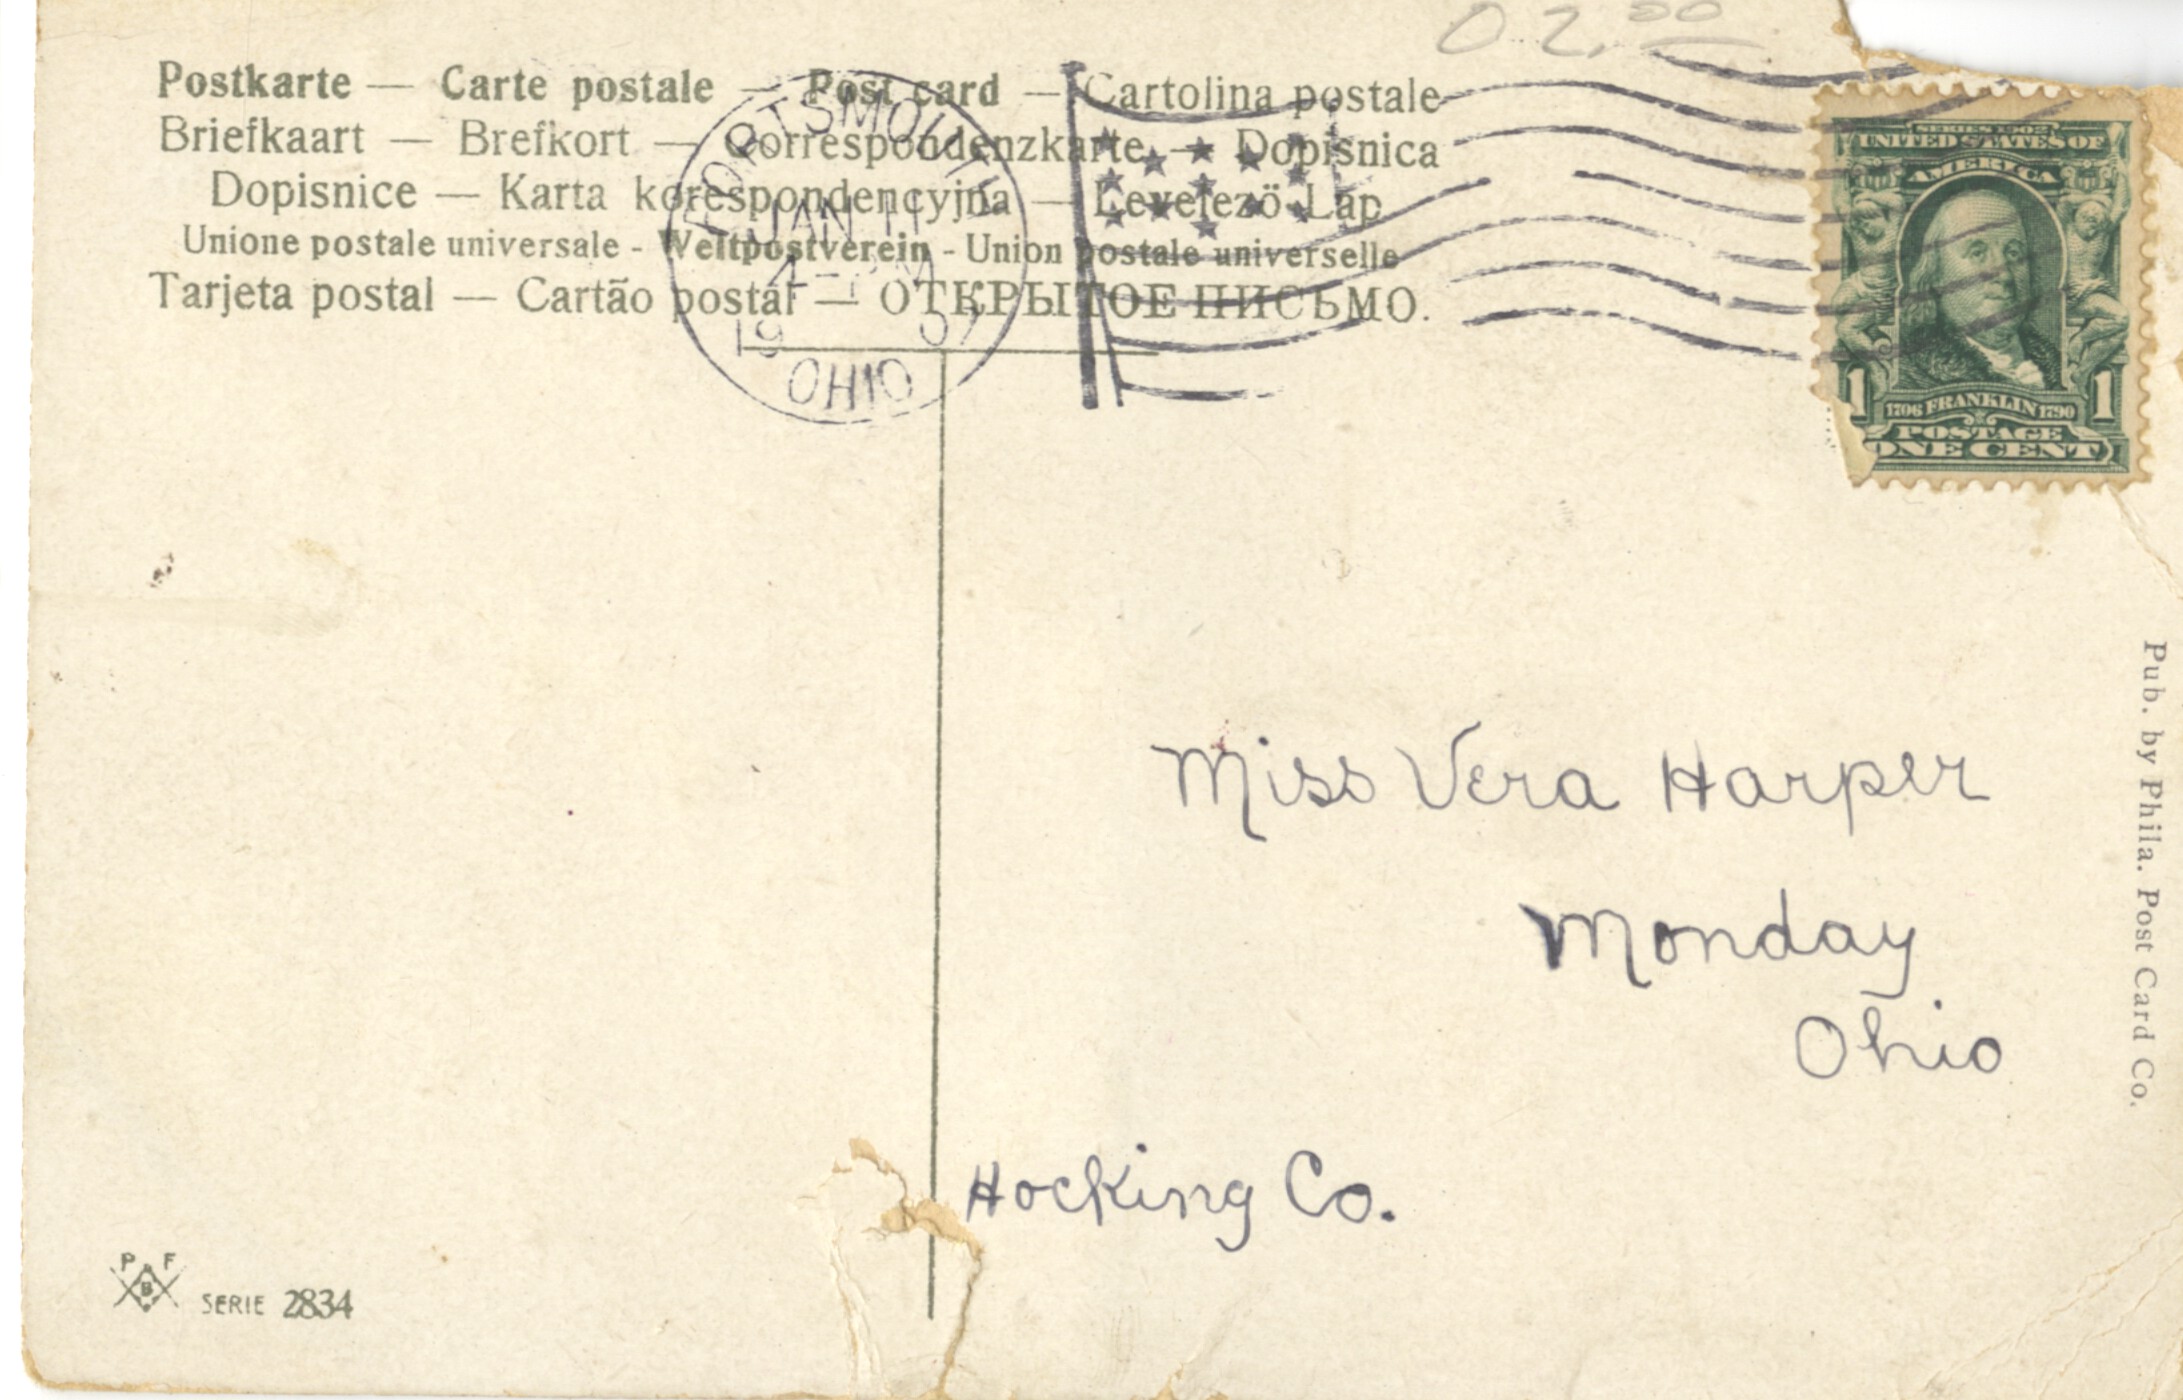 02.00
Postkarte — Carte postale — Post card — Cartolina postale
Briefkaart — Brefkort — Correspondenzkarte — Dopisnica
Dopisnice — Karta korespondencyjna — Levelezö-Lap
Unione postale universale - Weltpostverein - Union postale universelle
Tarjeta postal — Cartão postal — ОТКРЫТОЕ ПИСЬМО.
PORTSMOUTH
JAN 11
4-PM
19 07
OHIO
SERIES 1902
UNITED STATES OF
AMERICA
1 1706 FRANKLIN 1790 1
POSTAGE
ONE CENT
Miss Vera Harper
Monday
Ohio
Hocking Co.
Pub. by Phila. Post Card Co.
P F
B
SERIE 2834